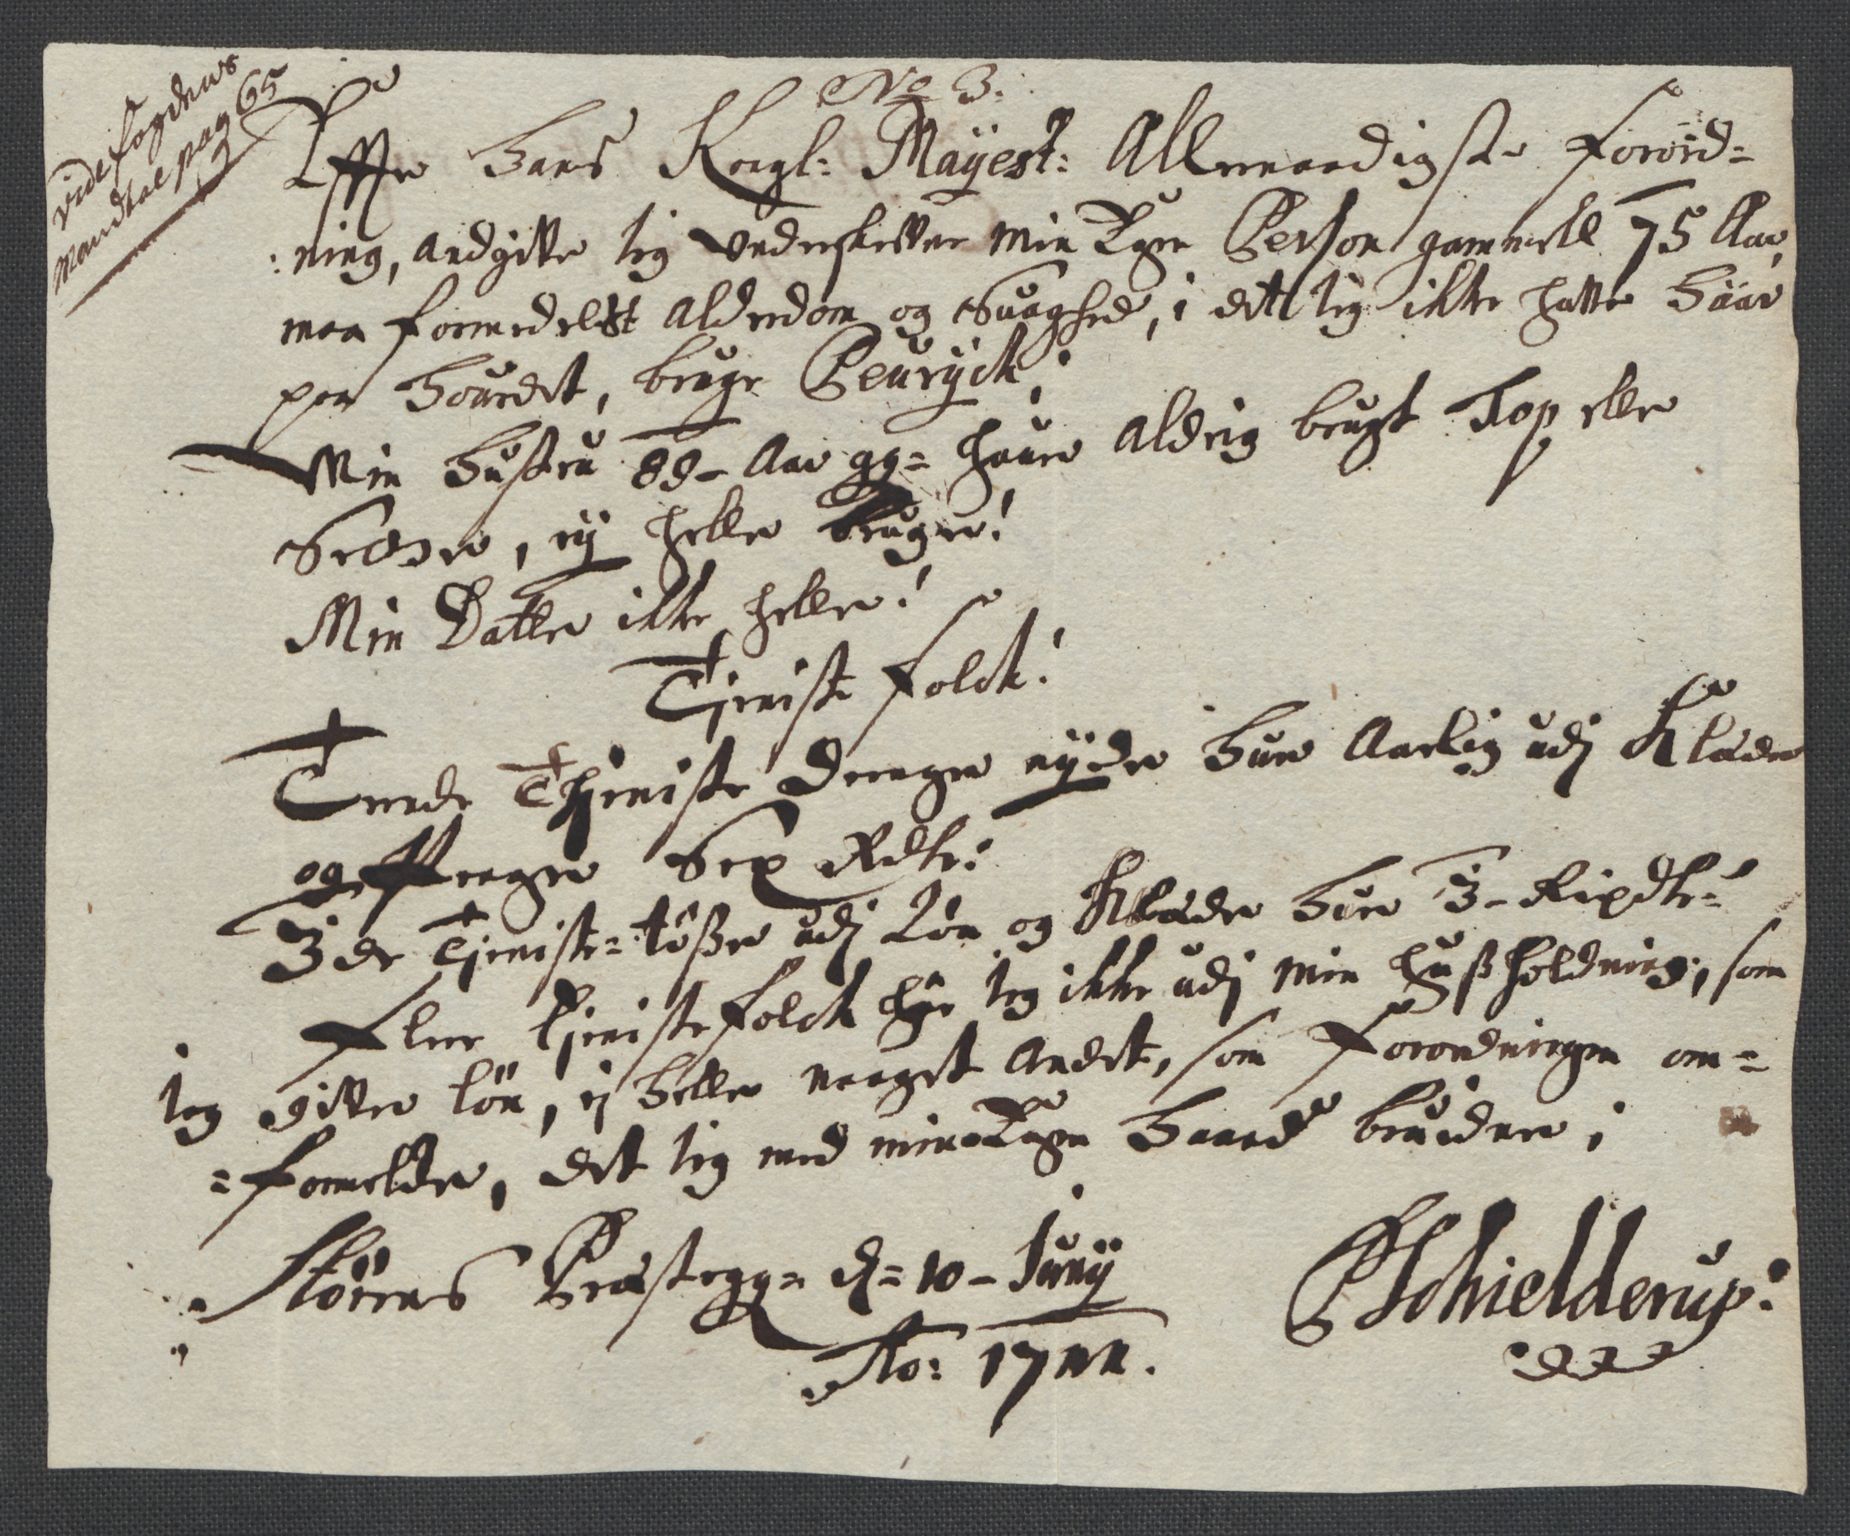 vide fogdens
Mandtal pag 65
No 3.
Effter Hans Kongl: Mayest: Allernaadigste Forord=
:ning, andgiver ieg underskrevne min Egen Person gammell 75 Aar,
maa formedelst Alderdom og Svaghed, i dett ieg ikke haver Haar
paa Hovedet, bruge Peuryck;
Min Hustru 88 - Aar gg= haver Aldrig brugt Top eller
ey heller bruger!
Min Datter ikke heller!
Tjeniste folck!
Trende Thieniste Drenge nyder Hver Aarlig udj Klæder
og Penge Sex Rdlr:
3 de Tjeniste=tøße udj Løn og Klæder Hver 3 - Rixdlr:
Flere Tjenistefolck har ieg ikke udj min Hußholdning, som
ieg giver løn, ej heller naaget Andet, som Forordningen om=
=formelder, det ieg med min Egen Haand bevidner;
Størens Præstegg= d= 10 - Junij
Ao: 1711.
PSchielderup: